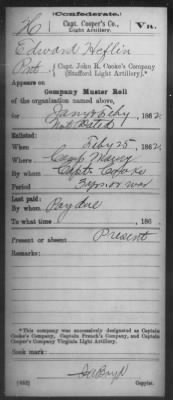 (Confederate.)
H Capt. Cooper's Co., Va.
Light Artillery.
Edward Heflin
Pvt { Capt. John R. Cooke's Company
(Stafford Light Artillery).*
Appears on
Company Muster Roll
of the organization named above,
for Jany & Feby, 1862.
Not Dated
Enlisted:
When Feby 25, 1862.
Where Camp Maury
By whom Capt. Cooke
Period 3 yrs or war
Last paid:
By whom Pay due
To what time , 186 .
Present or absent Present
Remarks:
*This company was successively designated as Captain
Cooke's Company, Captain French's Company, and Captain
Cooper's Company Virginia Light Artillery.
Book mark:
(652) Copyist.